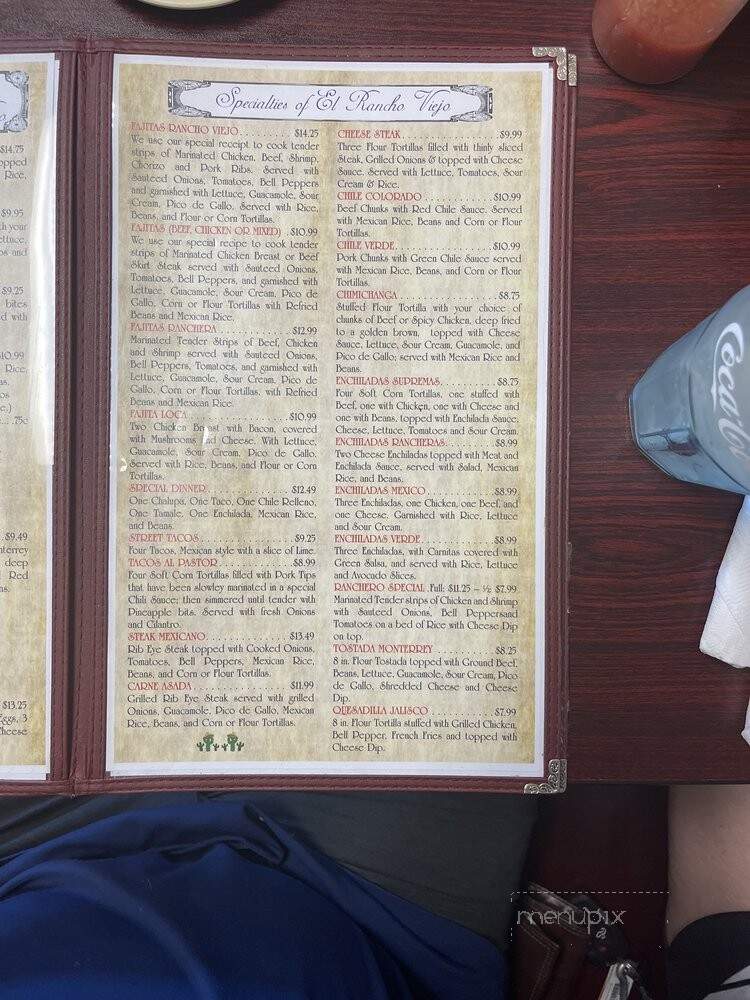 $14.75
Rice,
$9.95
$9.25
bites
$10.99
Rice,
.75c
$9.49
deep
Red
$13.25
Eggs, 3
Cheese
Specialties of El Rancho Viejo
FAJITAS RANCHO VIEJO . . . . . . . . . $14.25
We use our special receipt to cook tender
strips of Marinated Chicken, Beef, Shrimp,
Chorizo and Pork Ribs. Served with
Sauteed Onions, Tomatoes, Bell Peppers
and garnished with Lettuce, Guacamole, Sour
Cream, Pico de Gallo. Served with Rice,
Beans, and Flour or Corn Tortillas.
FAJITAS (BEEF, CHICKEN OR MIXED) . $10.99
We use our special recipe to cook tender
strips of Marinated Chicken Breast or Beef
Skirt Steak served with Sauteed Onions,
Tomatoes, Bell Peppers, and garnished with
Lettuce, Guacamole, Sour Cream, Pico de
Gallo, Corn or Flour Tortillas with Refried
Beans and Mexican Rice.
FAJITAS RANCHERA . . . . . . . . . . . . $12.99
Marinated Tender Strips of Beef, Chicken
and Shrimp served with Sauteed Onions,
Bell Peppers, Tomatoes, and garnished with
Lettuce, Guacamole, Sour Cream, Pico de
Gallo, Corn or Flour Tortillas, with Refried
Beans and Mexican Rice.
FAJITA LOCA . . . . . . . . . . . . . . . . $10.99
Two Chicken Breast with Bacon, covered
with Mushrooms and Cheese. With Lettuce,
Guacamole, Sour Cream, Pico de Gallo.
Served with Rice, Beans, and Flour or Corn
Tortillas.
SPECIAL DINNER . . . . . . . . . . . . . . $12.49
One Chalupa, One Taco, One Chile Relleno,
One Tamale, One Enchilada, Mexican Rice,
and Beans.
STREET TACOS . . . . . . . . . . . . . . . $9.25
Four Tacos, Mexican style with a slice of Lime.
TACOS AL PASTOR . . . . . . . . . . . . $8.99
Four Soft Corn Tortillas filled with Pork Tips
that have been slowley marinated in a special
Chili Sauce; then simmered until tender with
Pineapple bits. Served with fresh Onions
and Cilantro.
STEAK MEXICANO . . . . . . . . . . . . . $13.49
Rib Eye Steak topped with Cooked Onions,
Tomatoes, Bell Peppers, Mexican Rice,
Beans, and Corn or Flour Tortillas.
CARNE ASADA . . . . . . . . . . . . . . . $11.99
Grilled Rib Eye Steak served with grilled
Onions, Guacamole, Pico de Gallo, Mexican
Rice, Beans, and Corn or Flour Tortillas.
CHEESE STEAK . . . . . . . . . . . . . . . $9.99
Three Flour Tortillas filled with thinly sliced
Steak, Grilled Onions & topped with Cheese
Sauce. Served with Lettuce, Tomatoes, Sour
Cream & Rice.
CHILE COLORADO . . . . . . . . . . . . $10.99
Beef Chunks with Red Chile Sauce. Served
with Mexican Rice, Beans and Corn or Flour
Tortillas.
CHILE VERDE . . . . . . . . . . . . . . . . $10.99
Pork Chunks with Green Chile Sauce served
with Mexican Rice, Beans, and Corn or Flour
Tortillas.
CHIMICHANGA . . . . . . . . . . . . . . . $8.75
Stuffed Flour Tortilla with your choice of
chunks of Beef or Spicy Chicken, deep fried
to a golden brown, topped with Cheese
Sauce, Lettuce, Sour Cream, Guacamole, and
Pico de Gallo; served with Mexican Rice and
Beans.
ENCHILADAS SUPREMAS . . . . . . . . . $8.75
Four Soft Corn Tortillas, one stuffed with
Beef, one with Chicken, one with Cheese and
one with Beans, topped with Enchilada Sauce,
Cheese, Lettuce, Tomatoes and Sour Cream.
ENCHILADAS RANCHERAS . . . . . . . . $8.99
Two Cheese Enchiladas topped with Meat and
Enchilada Sauce, served with Salad, Mexican
Rice, and Beans.
ENCHILADAS MEXICO . . . . . . . . . . . $8.99
Three Enchiladas, one Chicken, one Beef, and
one Cheese. Garnished with Rice, Lettuce
and Sour Cream.
ENCHILADAS VERDE . . . . . . . . . . . . $8.99
Three Enchiladas, with Carnitas covered with
Green Salsa, and served with Rice, Lettuce
and Avocado Slices.
RANCHERO SPECIAL . Full: $11.25 – ½ $7.99
Marinated Tender strips of Chicken and Shrimp
with Sauteed Onions, Bell Peppersand
Tomatoes on a bed of Rice with Cheese Dip
on top.
TOSTADA MONTERREY . . . . . . . . . . $8.25
8 in. Flour Tostada topped with Ground Beef,
Beans, Lettuce, Guacamole, Sour Cream, Pico
de Gallo, Shredded Cheese and Cheese
Dip.
QUESADILLA JALISCO . . . . . . . . . . . $7.99
8 in. Flour Tortilla stuffed with Grilled Chicken,
Bell Pepper, French Fries and topped with
Cheese Dip.
menupix